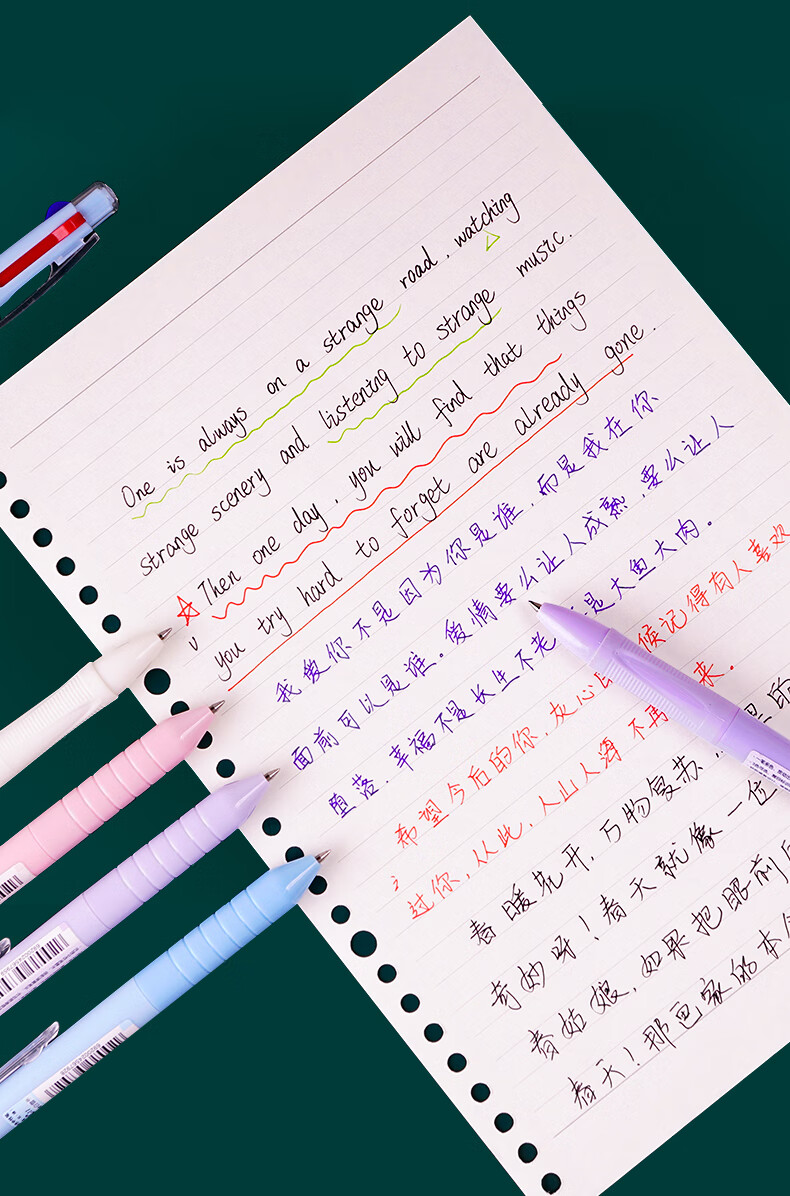 One is always on a strange road, watching
strange scenery and listening to strange music.
Then one day, you will find that things
you try hard to forget are already gone.
我爱你不是因为你是谁，而是我在你
面前可以是谁。爱情要么让人成熟，要么让人
堕落，幸福不是长生不老，是大鱼大肉。
希望今后的你，灰心时候记得有人喜欢
过你，从此，人山人海不再来。
春暖花开，万物复苏
奇妙呀！春天就像一位
春姑娘，如果把眼前
春天！那画家的本